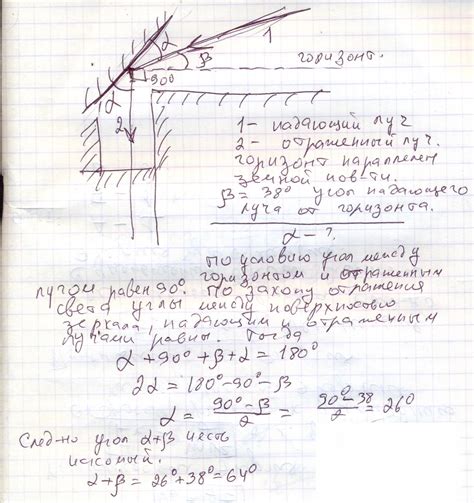 α
1
β
горизонт.
90°
α
2
1 – падающий луч
2 – отраженный луч.
горизонт параллелен
земной пов-ти.
β = 38° угол падающего
луча от горизонта.
α – ?
По условию угол между
горизонтом и отраженным
лучом равен 90°. По закону отражения
света углы между поверхностью
зеркала, падающим и отраженным
лучами равны. Тогда
α + 90° + β + α = 180°
2α = 180° – 90° – β
α = (90° – β)/2 = (90° – 38)/2 = 26°
След-но угол α+β и есть
искомый.
α + β = 26° + 38° = 64°